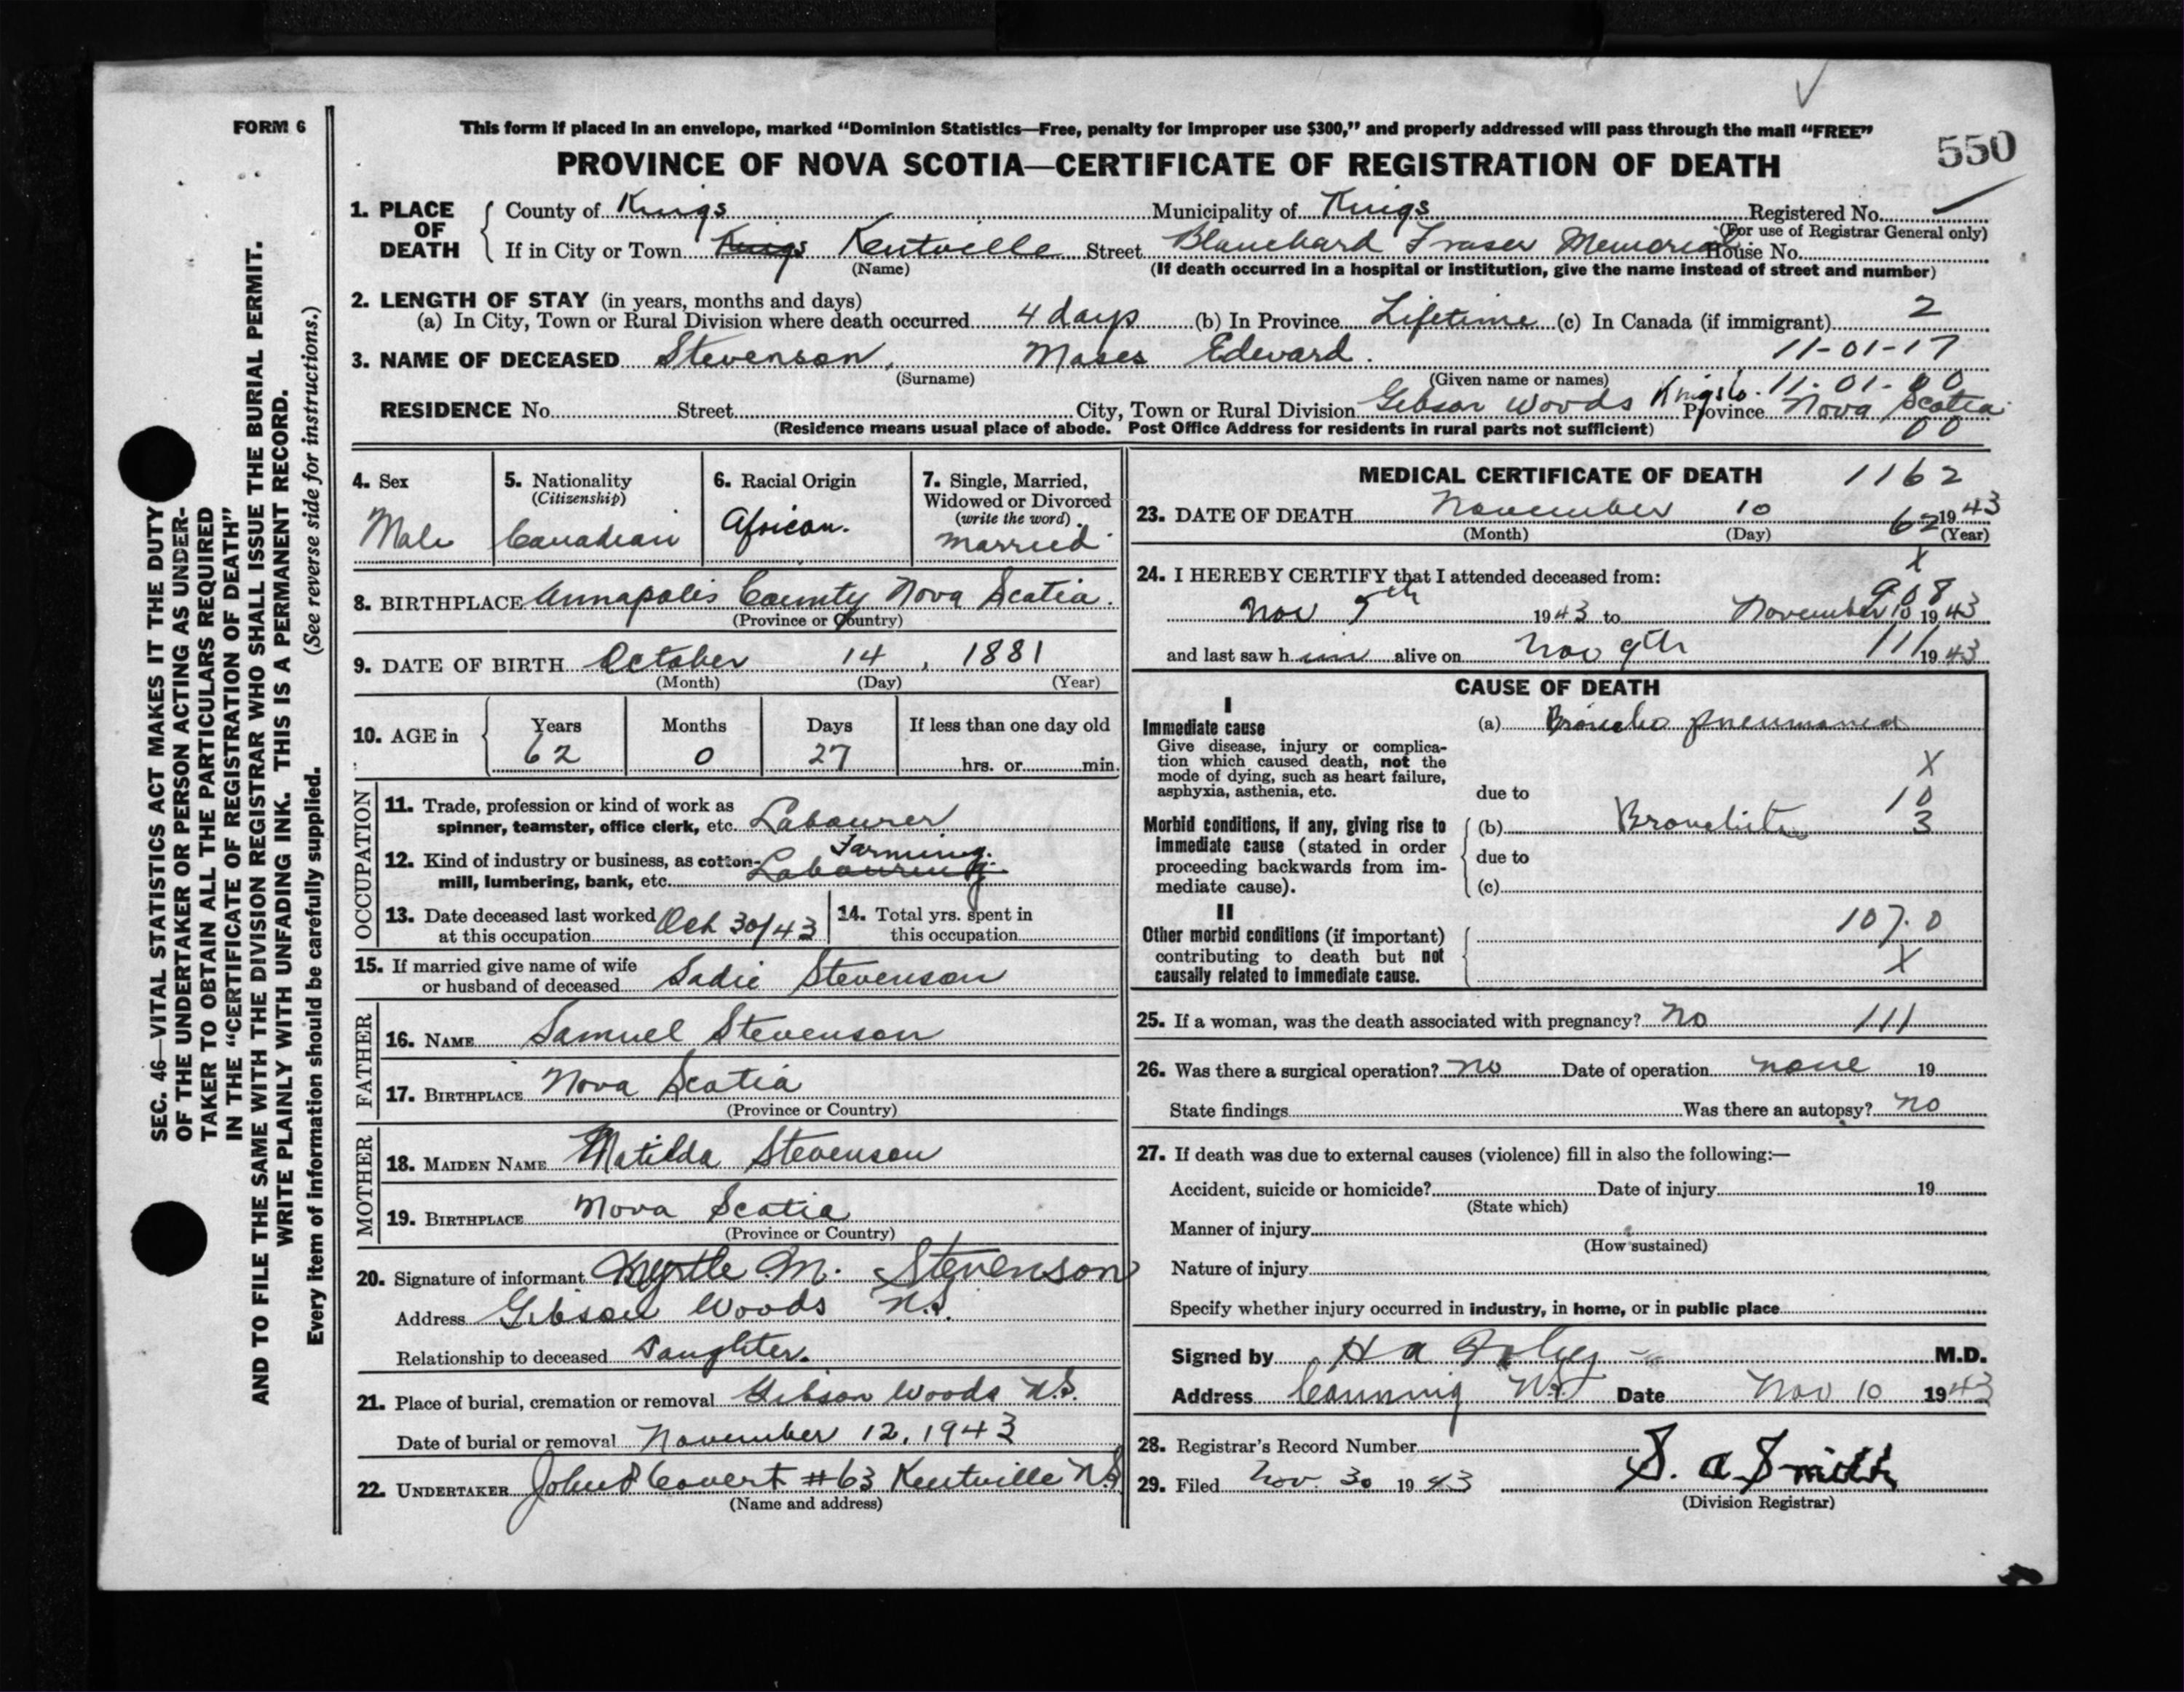 FORM 6
This form if placed in an envelope, marked “Dominion Statistics—Free, penalty for improper use $300,” and properly addressed will pass through the mail “FREE”
550
PROVINCE OF NOVA SCOTIA—CERTIFICATE OF REGISTRATION OF DEATH
SEC. 46—VITAL STATISTICS ACT MAKES IT THE DUTY
OF THE UNDERTAKER OR PERSON ACTING AS UNDER-
TAKER TO OBTAIN ALL THE PARTICULARS REQUIRED
IN THE “CERTIFICATE OF REGISTRATION OF DEATH”
AND TO FILE THE SAME WITH THE DIVISION REGISTRAR WHO SHALL ISSUE THE BURIAL PERMIT.
WRITE PLAINLY WITH UNFADING INK. THIS IS A PERMANENT RECORD.
Every item of information should be carefully supplied. (See reverse side for instructions.)
1. PLACE OF DEATH
County of Kings Municipality of Kings Registered No.
(For use of Registrar General only)
If in City or Town Kings Kentville Street Blanchard Fraser Memorial House No.
(Name) (If death occurred in a hospital or institution, give the name instead of street and number)
2. LENGTH OF STAY (in years, months and days)
(a) In City, Town or Rural Division where death occurred 4 days (b) In Province Lifetime (c) In Canada (if immigrant) 2
11-01-17
3. NAME OF DECEASED Stevenson, Moses Edward.
(Surname) (Given name or names)
Kings Co. 11-01-00
RESIDENCE No. Street City, Town or Rural Division Gibson Woods Province Nova Scotia
(Residence means usual place of abode. Post Office Address for residents in rural parts not sufficient) 00
4. Sex
Male
5. Nationality
(Citizenship)
Canadian
6. Racial Origin
African.
7. Single, Married,
Widowed or Divorced
(write the word)
Married
8. BIRTHPLACE Annapolis County Nova Scotia.
(Province or Country)
9. DATE OF BIRTH October 14, 1881
(Month) (Day) (Year)
10. AGE in
Years Months Days If less than one day old
62 0 27 hrs. or min.
OCCUPATION
11. Trade, profession or kind of work as
spinner, teamster, office clerk, etc. Labourer
Farming.
12. Kind of industry or business, as cotton-
mill, lumbering, bank, etc. Labouring
13. Date deceased last worked
at this occupation Oct 30/43
14. Total yrs. spent in
this occupation
15. If married give name of wife
or husband of deceased Sadie Stevenson
FATHER
16. NAME Samuel Stevenson
17. BIRTHPLACE Nova Scotia
(Province or Country)
MOTHER
18. MAIDEN NAME Matilda Stevenson
19. BIRTHPLACE Nova Scotia
(Province or Country)
20. Signature of informant Myrtle M. Stevenson
Address Gibson Woods N.S.
Relationship to deceased Daughter.
21. Place of burial, cremation or removal Gibson Woods N.S.
Date of burial or removal November 12, 1943
22. UNDERTAKER John P Covert #63 Kentville N.S
(Name and address)
MEDICAL CERTIFICATE OF DEATH 1162
23. DATE OF DEATH November 10 62 1943
(Month) (Day) (Year)
X
24. I HEREBY CERTIFY that I attended deceased from:
908
Nov 5th 1943 to November 10 1943
and last saw him alive on Nov 9th 111 1943
CAUSE OF DEATH
I
Immediate cause (a) Broncho pneumonia
Give disease, injury or complica-
tion which caused death, not the
mode of dying, such as heart failure,
asphyxia, asthenia, etc.
X
due to 10
Morbid conditions, if any, giving rise to (b) Bronchitis 3
immediate cause (stated in order due to
proceeding backwards from im-
mediate cause). (c)
II 107.0
Other morbid conditions (if important)
contributing to death but not X
causally related to immediate cause.
25. If a woman, was the death associated with pregnancy? No 111
26. Was there a surgical operation? No Date of operation none 19
State findings Was there an autopsy? No
27. If death was due to external causes (violence) fill in also the following:—
Accident, suicide or homicide? Date of injury 19
(State which)
Manner of injury
(How sustained)
Nature of injury
Specify whether injury occurred in industry, in home, or in public place
Signed by H A M.D.
Address Canning N.S. Date Nov 10 1943
28. Registrar's Record Number
29. Filed Nov. 30 1943 S. A. Smith
(Division Registrar)